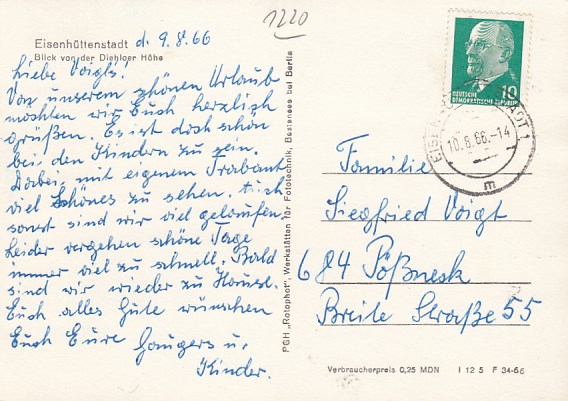 1220
Eisenhüttenstadt d. 9.8.66
Blick von der Diehloer Höhe
Liebe Voigts!
Von unserem schönen Urlaub
möchten wir Euch herzlich
grüßen. Es ist doch schön
bei den Kindern zu sein.
Dabei mit eigenem Trabant
viel Schönes zu sehen. Auch
sonst sind wir viel gelaufen.
Leider vergehen schöne Tage
immer viel zu schnell. Bald
sind wir wieder zu Hause.
Euch alles Gute wünschen
Euch Eure Gaugers u.
Kinder.
PGH „Rotophot", Werkstätten für Fototechnik, Bestensee bei Berlin
10
DEUTSCHE
DEMOKRATISCHE REPUBLIK
10.8.66.-14
m
Familie
Siegfried Voigt
684 Pößneck
Breite Straße 55
Verbraucherpreis 0,25 MDN I 12 5 F 34-66